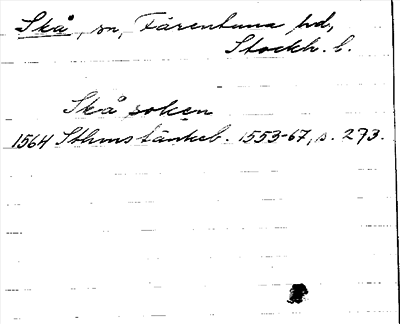 Skå, sn, Färentuna hd,
Stockh. l.
Skå soken
1564 Sthms tänkeb. 1553-67, s. 273.